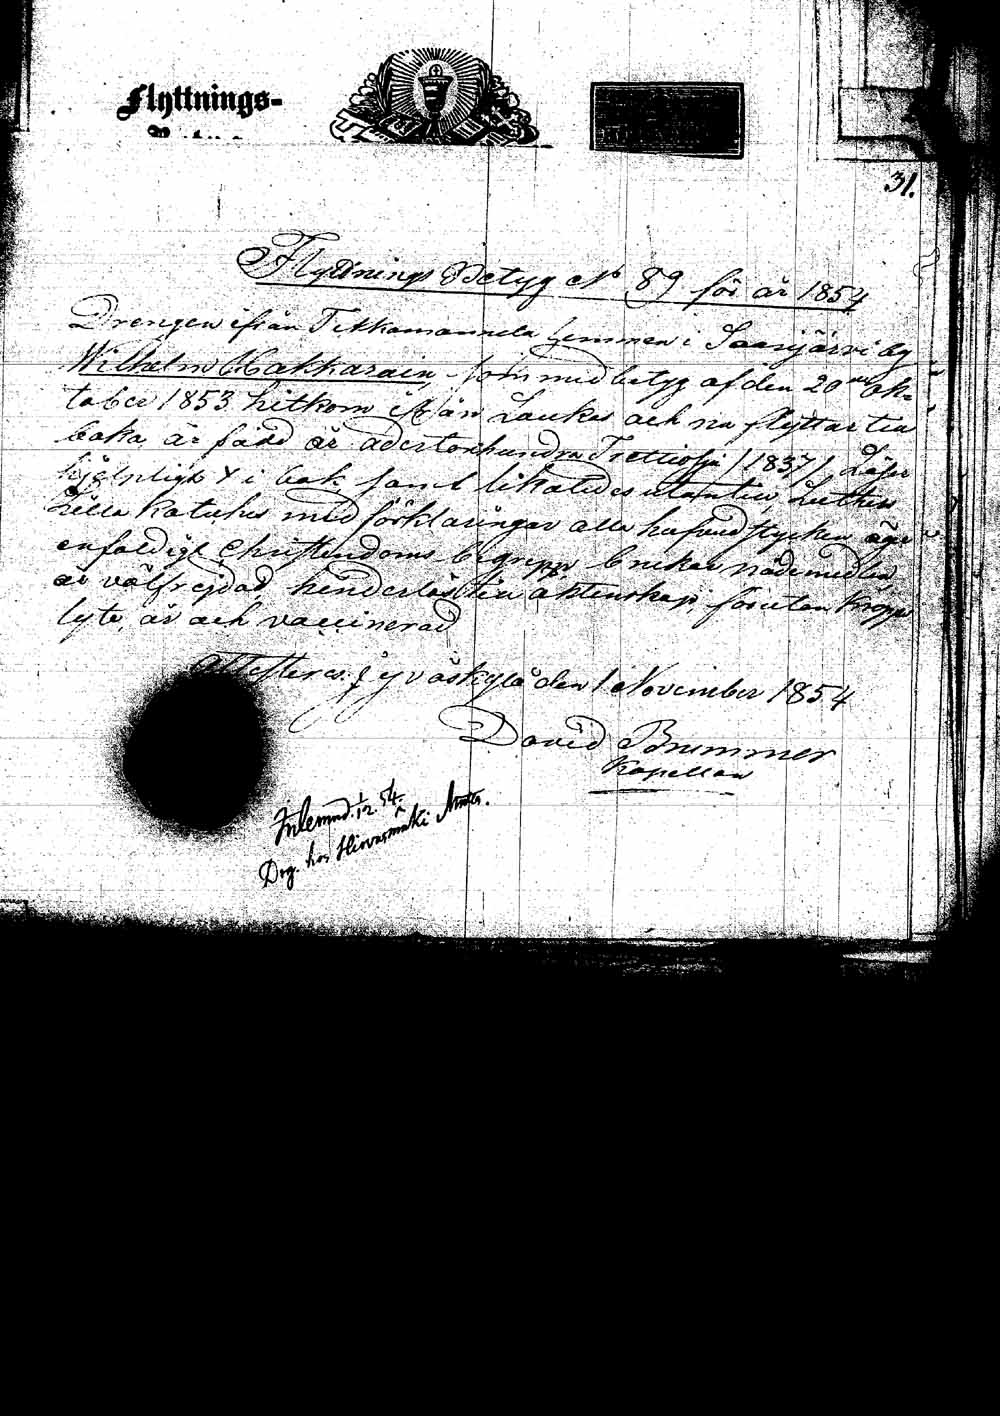 Flyttnings-
31.
Flyttnings Betyg No 89 för år 1854
Drengen ifrån Tikkamannila hemman i Saarijärvi by
Wilhelm Makkarain, som med betyg af den 20 Ok-
tober 1853 hitkom ifrån Laukas och nu flyttar till
baka, är född år adertonhundra Trettiosju /1837/, Läser
i bok samt likaledes utantill Luthers
Lilla Katekes med förklaringar alla hufvudstycken äger
enfaldigt Christendoms begrepp, brukar nådemedlen,
är välfrejdad, hinderlös till äktenskap, förutan kropps
lyte, är och vaccinerad
Attesteras. Jyväskylä den 1 November 1854
David Brummer
Kapellan
Inlemnad. 1/12 54.
Drg. hos Hirvasmäki